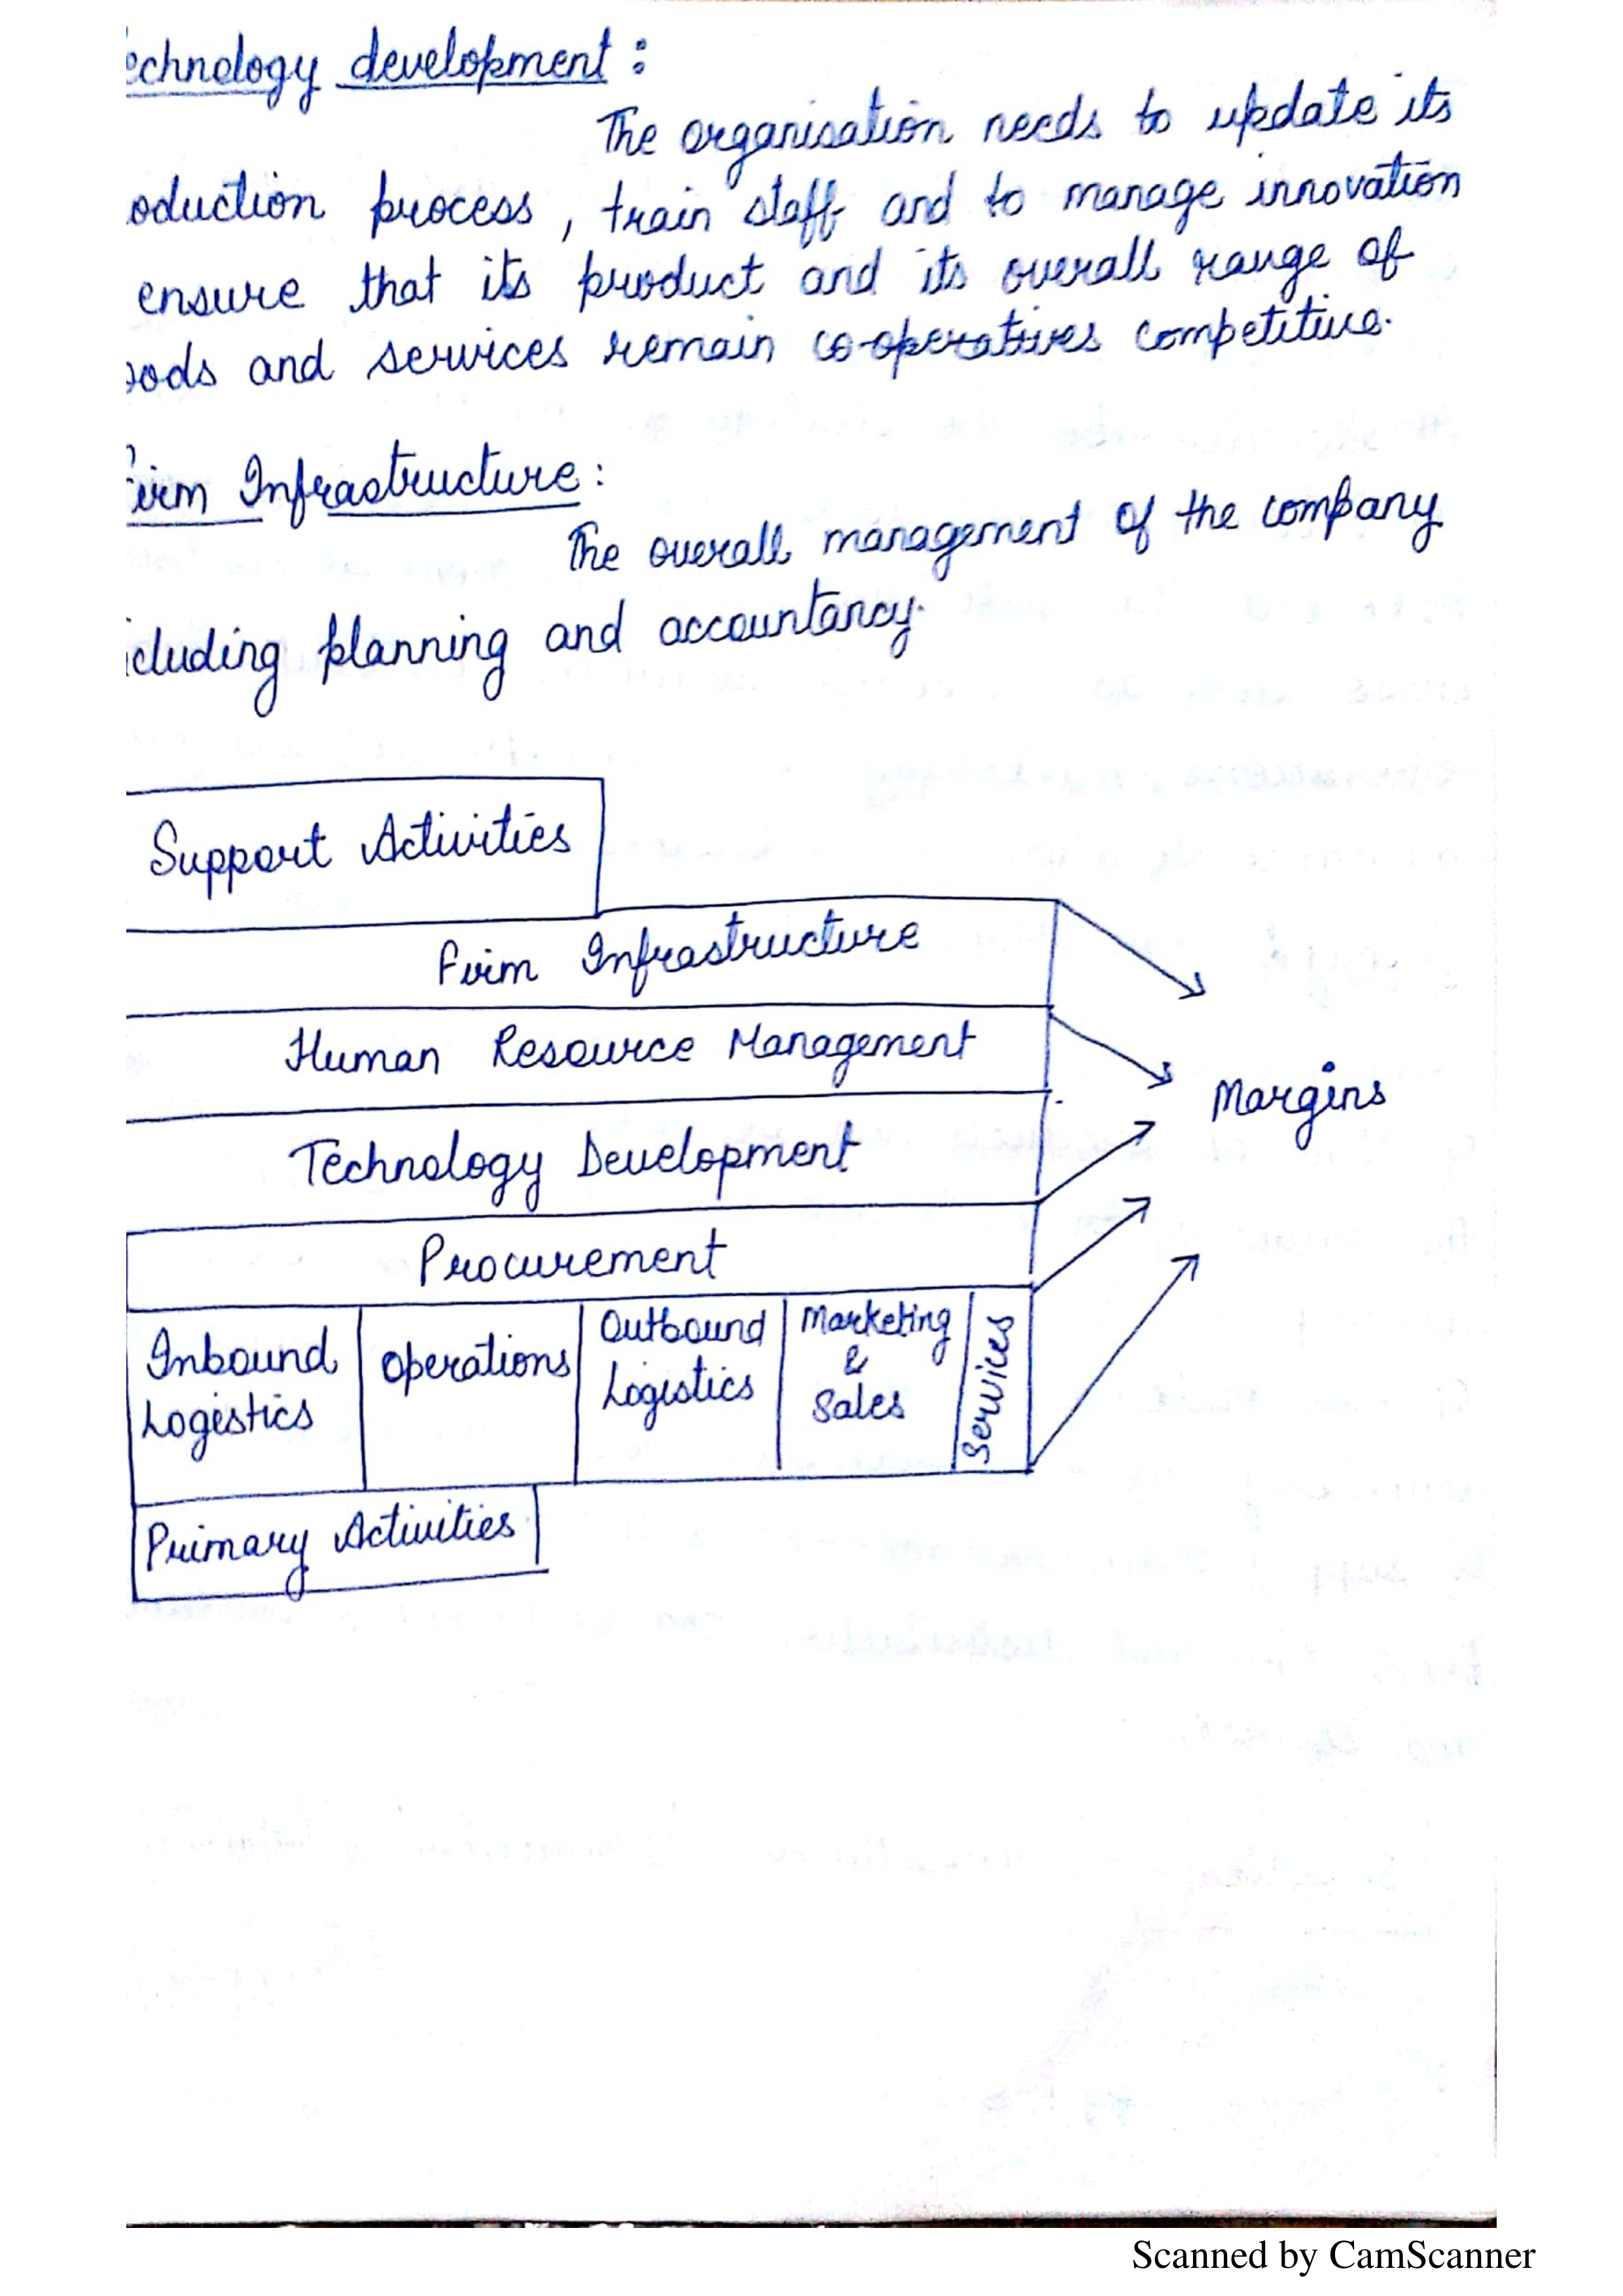 echnology development :
The organisation needs to update its
oduction process, train staff and to manage innovation
ensure that its product and its overall range of
oods and services remain co-operatives competitive.
Firm Infrastructure :
The overall management of the company
cluding planning and accountancy.
Support Activities
Firm Infrastructure
Human Resource Management
Margins
Technology Development
Procurement
Inbound
Logistics
Operations
Outbound
Logistics
Marketing
&
Sales
Services
Primary Activities
Scanned by CamScanner